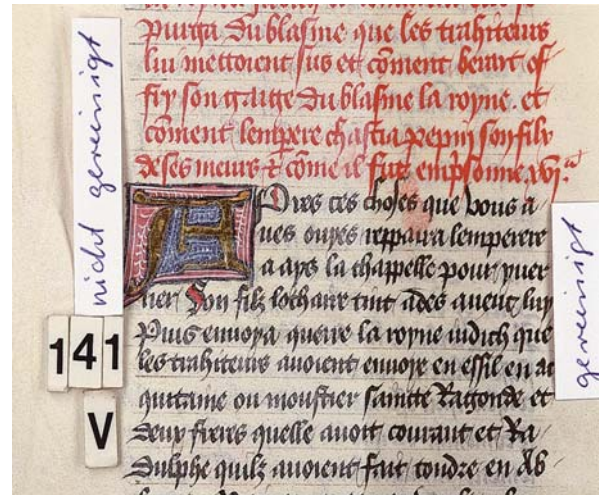 purga du blasme que les trahiteurs
lui mettoient sus et cōment berart of
fry son gaige du blasme la royne. et
cōment lempere chastia pepin son filz
de ses meurs t cōme il fut emp̄sonne. xvi.
Apres ces choses que vous a
ues ouyes reppaira lemperere
a ays la chappelle pour yuer
ner Son filz lothaire tint ades auecq luy
Puis enuoya querre la royne iudich que
les trahiteurs auoient enuoye en essil en ac
quitaine ou moustier saincte Ragonde et
deux freres quelle auoit courant et Ra
dulphe quilz auoient fait tondre en Ab
nicht gereinigt
gereinigt
141
V